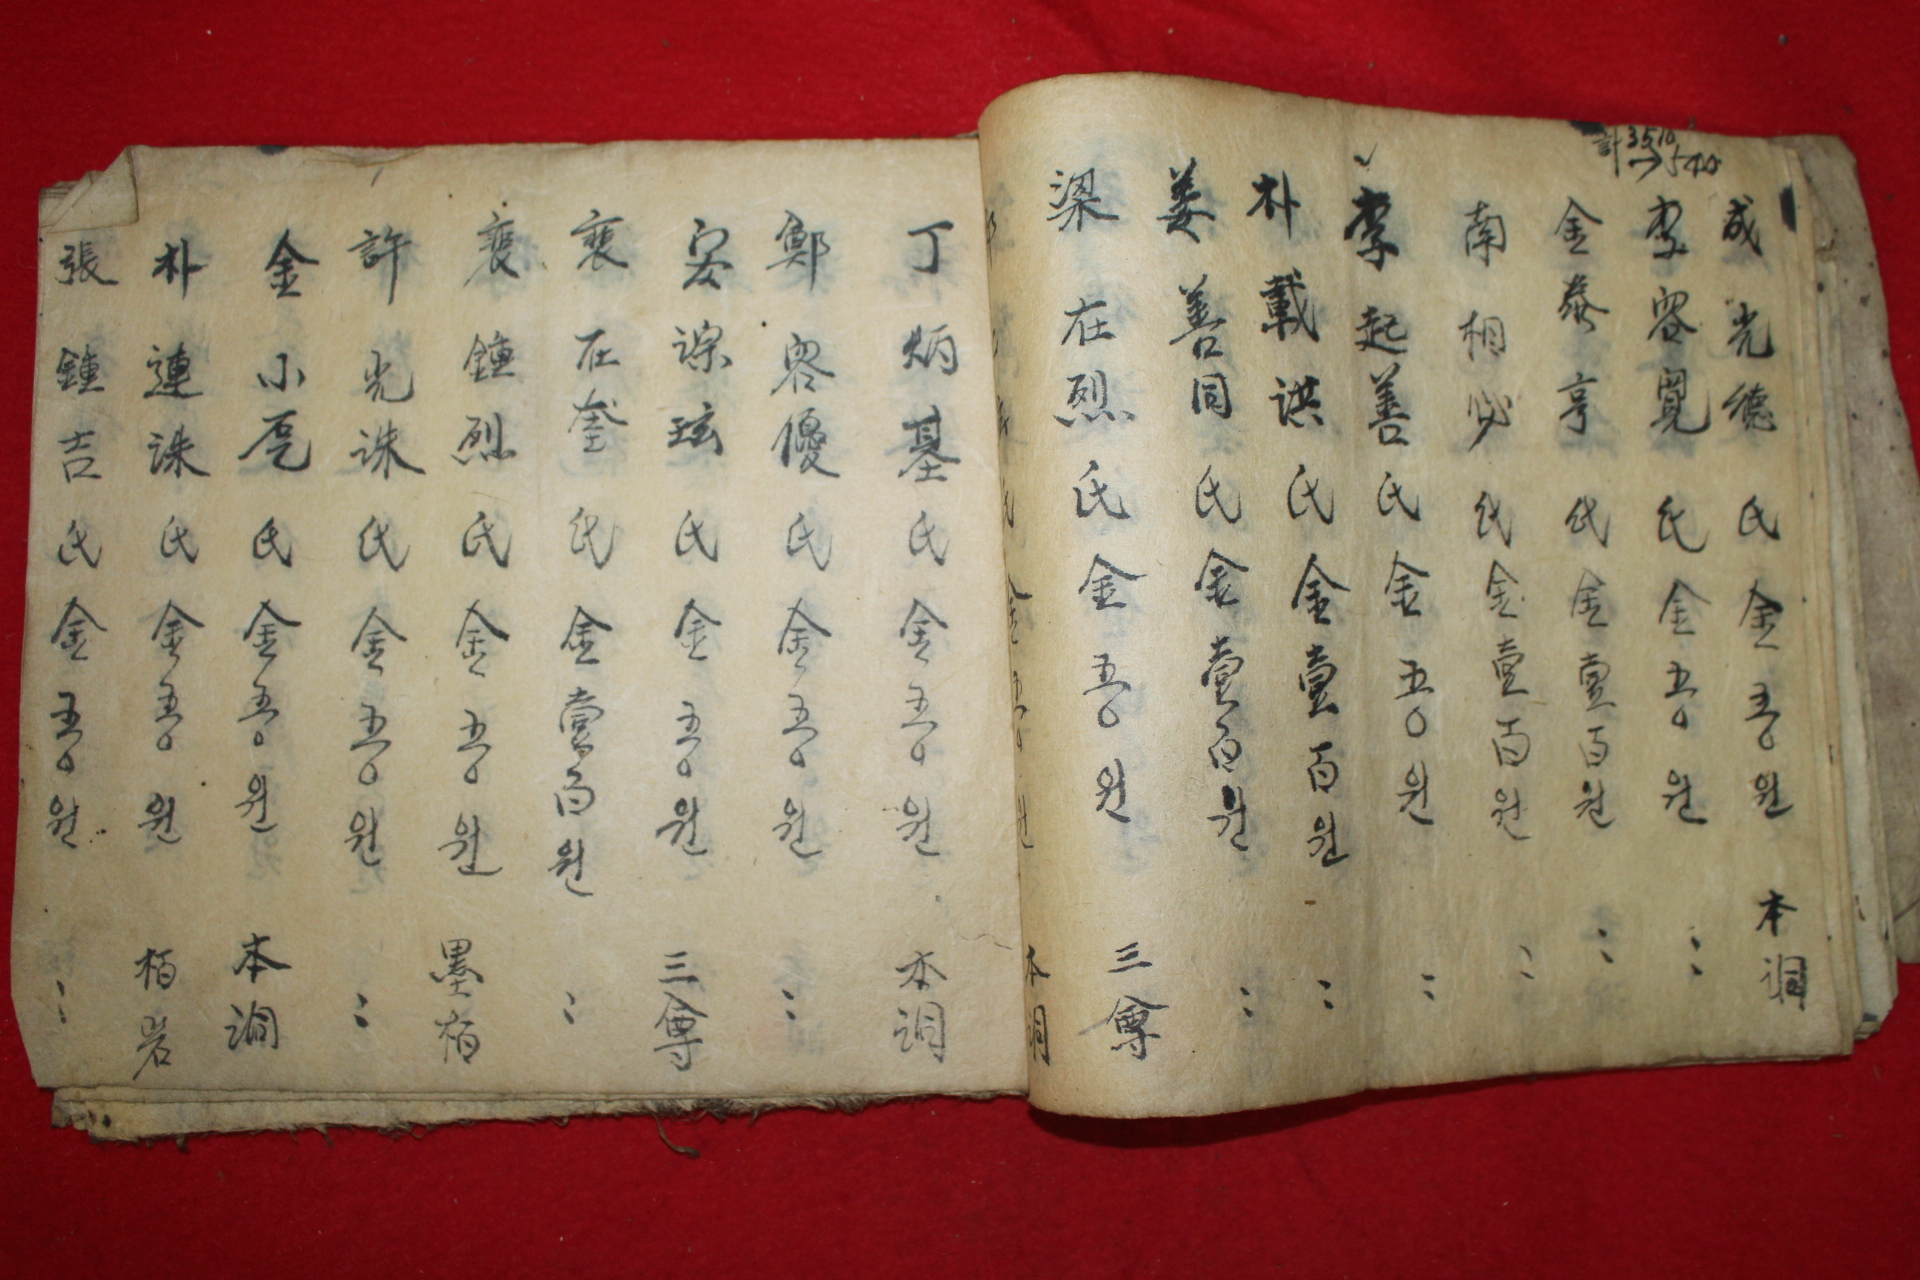 計 3510
成光德氏 金五〇원 本洞
李容寬氏 金五〇원 〃
金泰亨氏 金壹百원 〃
南相必氏 金壹百원 〃
李起善氏 金五〇원 〃
朴載洪氏 金壹百원 〃
姜善同氏 金壹百원 〃
梁在烈氏 金五〇원 三會
氏 金五〇원 本洞
丁炳基氏 金五〇원 本洞
鄭容優氏 金五〇원 〃
安淙玹氏 金五〇원 三會
裵在奎氏 金壹百원 〃
裵鍾烈氏 金五〇원 墨栢
許光洙氏 金五〇원 〃
金小 氏 金五〇원 本洞
朴連洙氏 金五〇원 栢岩
張鍾吉氏 金五〇원 〃